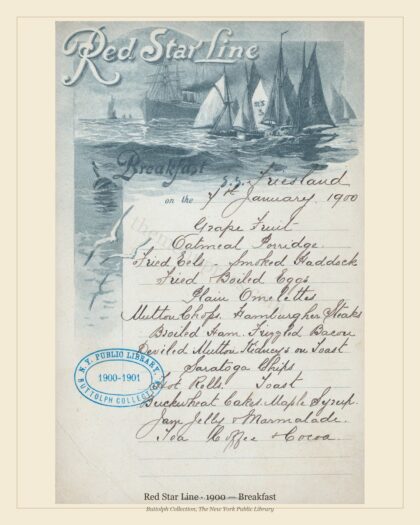 Red Star Line
Breakfast
S.S. Friesland
on the 7th January, 1900
Grape Fruit
Oatmeal Porridge.
Fried Eels - Smoked Haddock
Fried Boiled Eggs
Plain Omelettes
Mutton Chops. Hamburgher Steaks
Broiled Ham. Frizzled Bacon
Deviled Mutton Kidneys on Toast
Saratoga Chips
Hot Rolls. Toast
Buckwheat Cakes Maple Syrup.
Jam Jelly & Marmalade.
Tea Coffee & Cocoa.
N.Y. PUBLIC LIBRARY
1900-1901
BUTTOLPH COLLECTION
Red Star Line - 1900 — Breakfast
Buttolph Collection, The New York Public Library